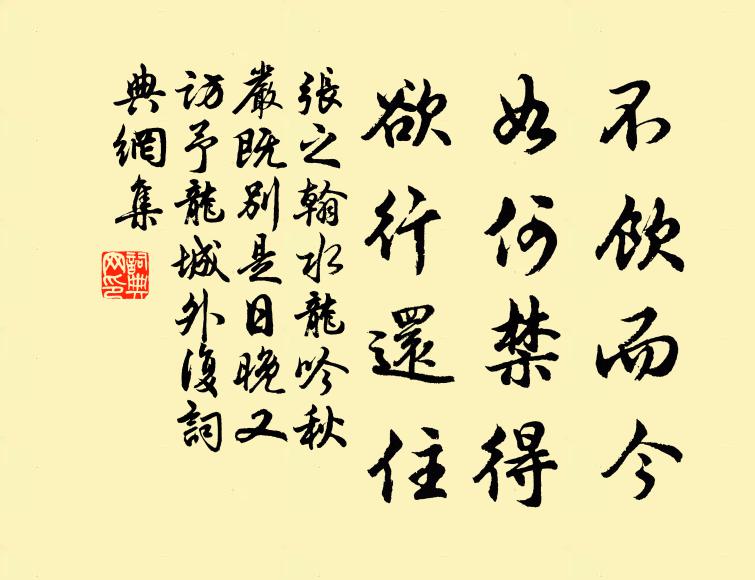 不飲而今
如何禁得
欲行還住
張之翰水龍吟秋
嚴既別是日晚又
訪予龍城外復詞
典網集
詞典網印